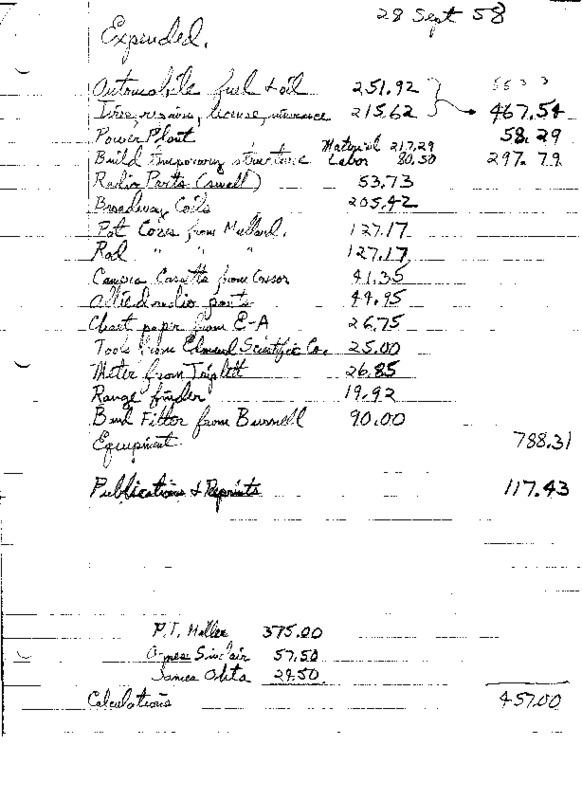 28 Sept 58
Expended.
Automobile fuel + oil 251.92
Tires, repairs, license, insurance 215.62 467.54
Power Plant 58.29
Build temporary structure Material 217.29 Labor 80.50 297.79
Radio Parts (small) 53.73
Broadway Coils 205.42
Pot Cores from Mullard. 127.17
Rod " " " 127.17
Camera Cassette from Cossor 41.35
Allied radio parts 44.95
Chart paper from E-A 26.75
Tools from Edmund Scientific Co. 25.00
Meter from Triplett 26.85
Range finder 19.92
Band Filter from Burnell 90.00
Equipment 788.31
Publications & Reprints 117.43
P.T. 375.00
Agnes Sinclair 57.50
James Ohta 24.50
Calculations 457.00